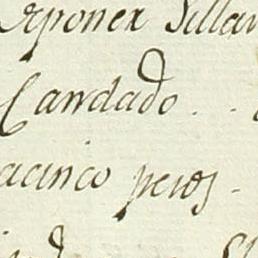 reponer Sillar
Candado . . .
acinco pesos -